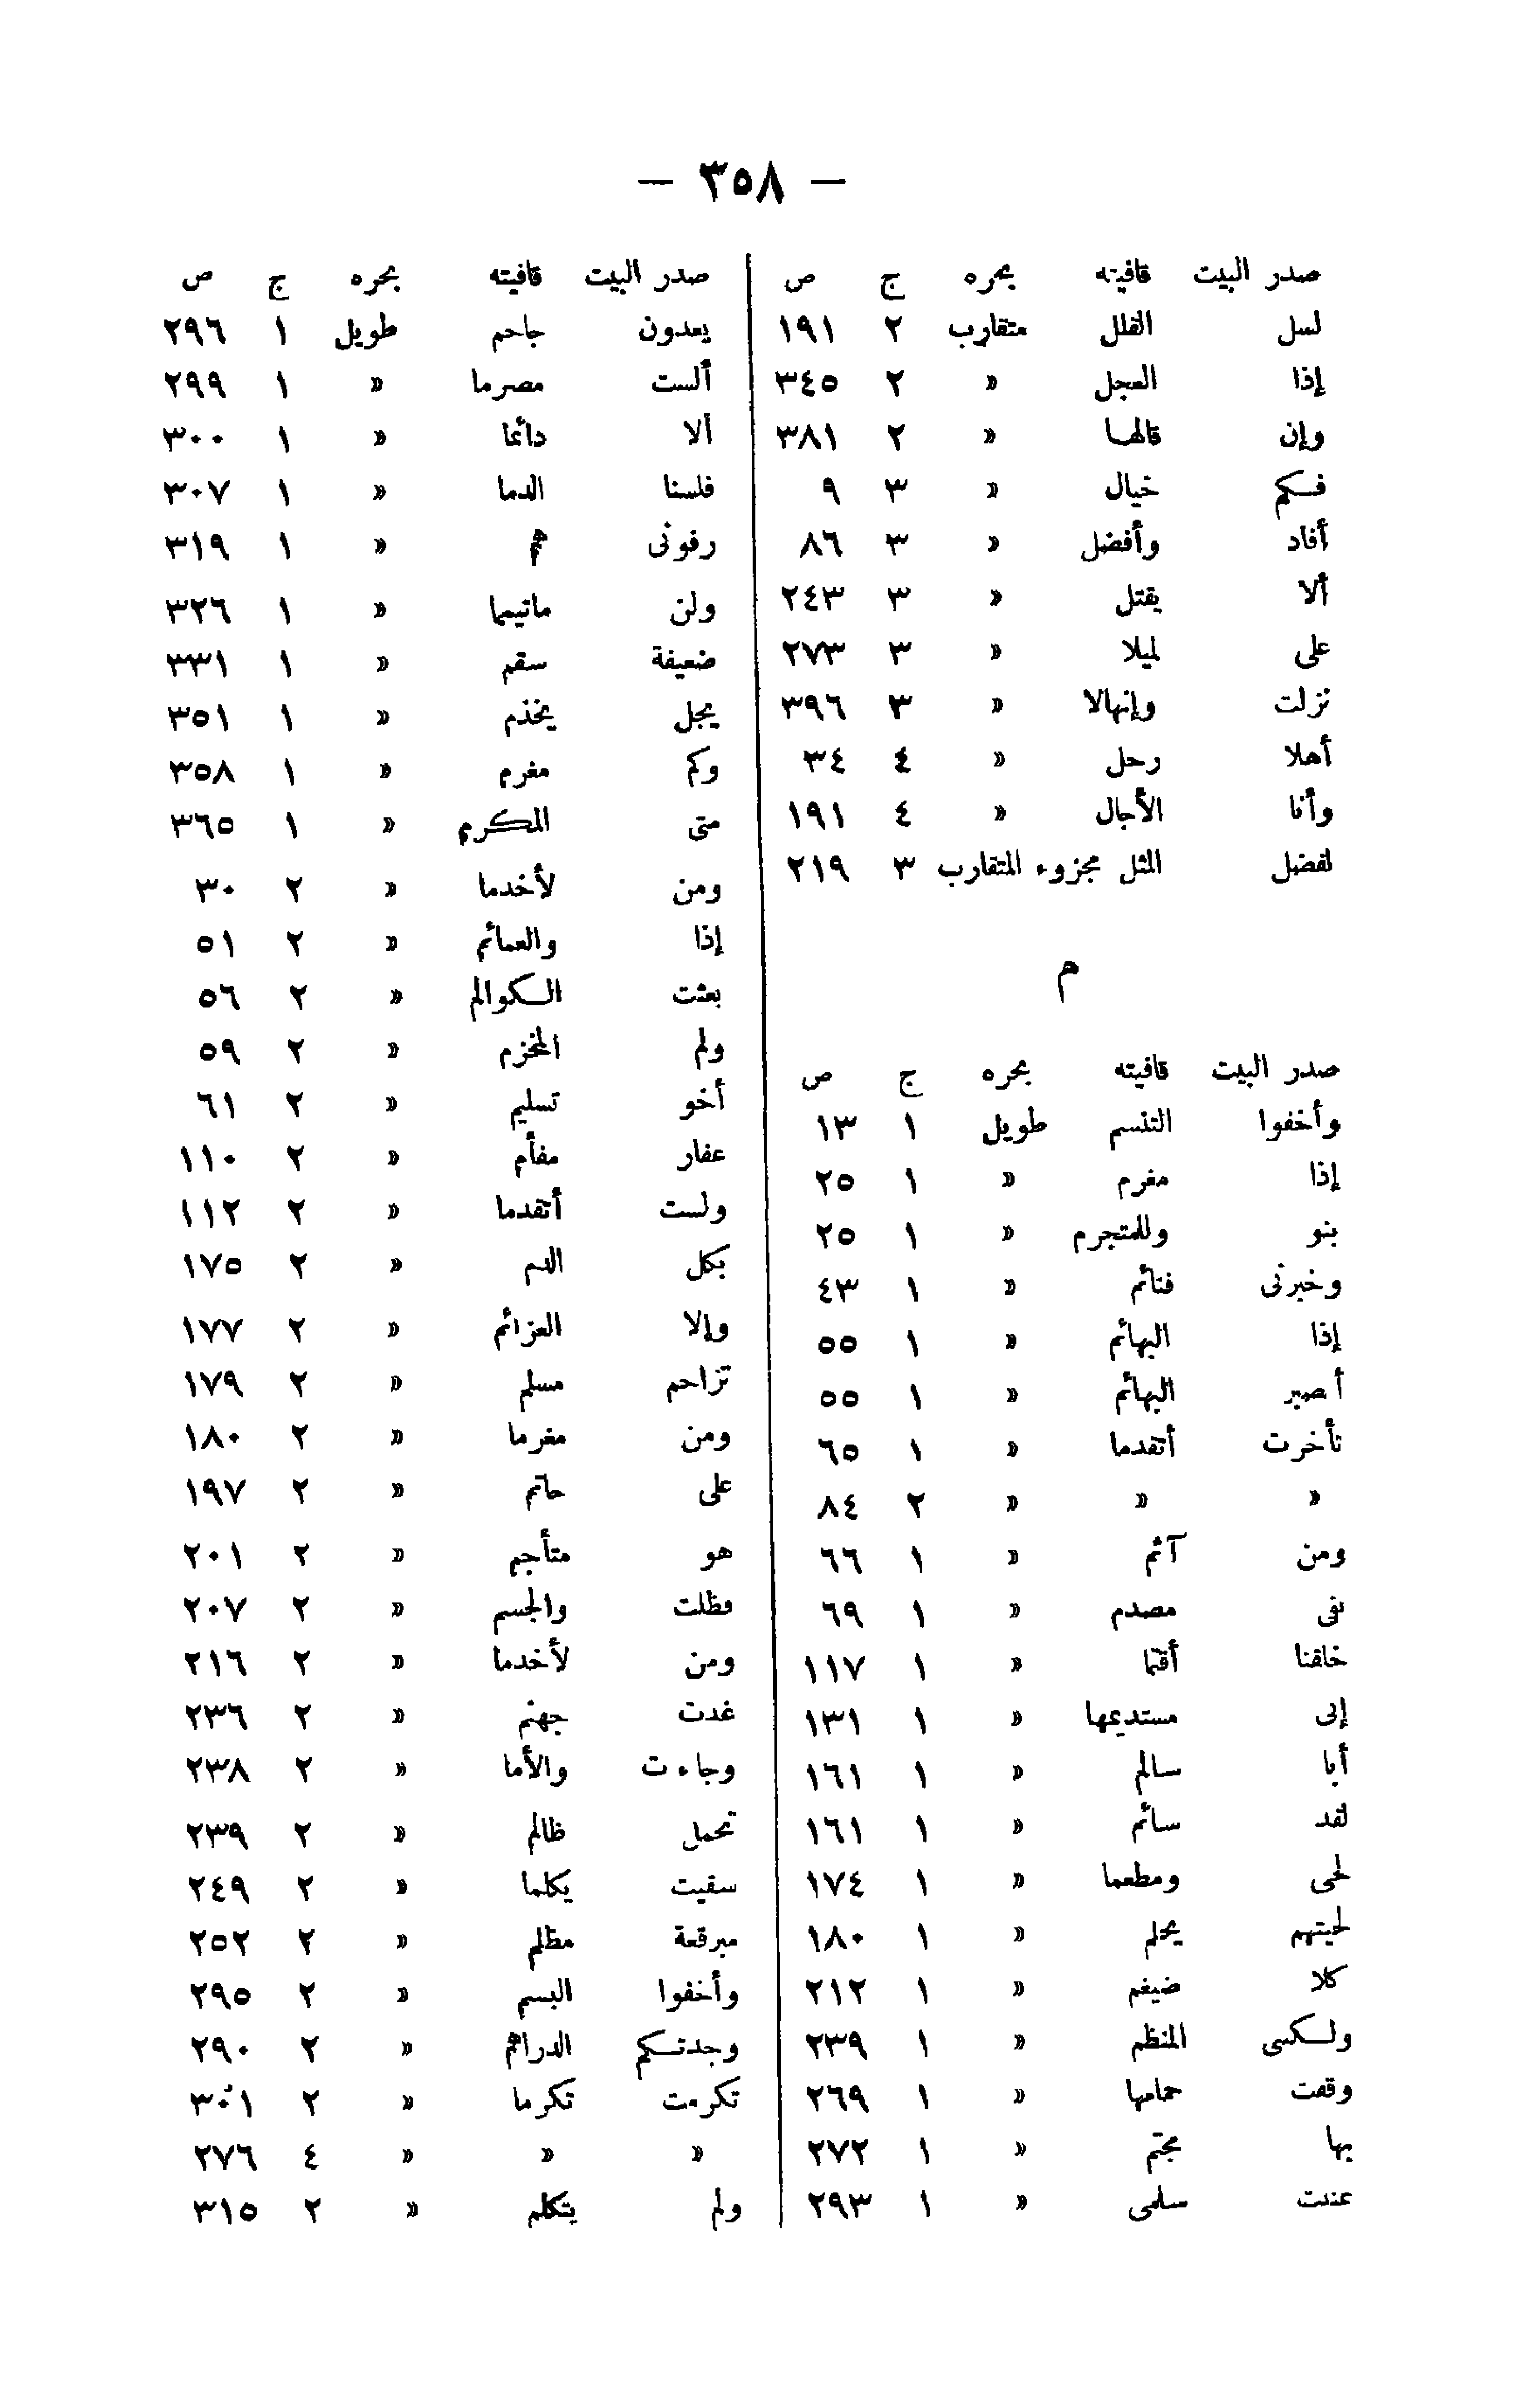 — ٣٥٨ —
صدر البيت قافيته بحره ج ص
لسل القلل متقارب ٢ ١٩١
إذا العجل » ٢ ٣٤٥
وإن قالها » ٢ ٣٨١
فكم خيال » ٣ ٩
أفاد وأفضل » ٣ ٨٦
ألا يقتل » ٣ ٢٤٣
على لميلا » ٣ ٢٧٣
نزلت وإنهالا » ٣ ٣٩٦
أهلا رحل » ٤ ٣٤
وأنا الأجال » ٤ ١٩١
لفضل المثل مجزوء المتقارب ٣ ٢١٩
م
صدر البيت قافيته بحره ج ص
وأخفوا التنسم طويل ١ ١٣
إذا مغرم » ١ ٢٥
بنو وللمتجرم » ١ ٢٥
وخبرنى فنائم » ١ ٤٣
إذا البهائم » ١ ٥٥
أصبر البهائم » ١ ٥٥
تأخرت أتقدما » ١ ٦٥
» » » ٢ ٨٤
ومن آثم » ١ ٦٦
نفى مصدم » ١ ٦٩
خلقنا أقتما » ١ ١١٧
إلى مستديمها » ١ ١٣١
أبا سالم » ١ ١٦١
لقد سائم » ١ ١٦١
لحى ومطعما » ١ ١٧٤
لحيتهم يحلم » ١ ١٨٠
كلا ضيغم » ١ ٢١٢
ولكنى المنظم » ١ ٢٣٩
وقفت حمامها » ١ ٢٦٩
بها مجثم » ١ ٢٧٢
عنت سلمى » ١ ٢٩٣
صدر البيت قافيته بحره ج ص
يعدون جاحم طويل ١ ٢٩٦
ألست مصرما » ١ ٢٩٩
ألا دائما » ١ ٣٠٠
فلسنا الدما » ١ ٣٠٧
رفونى هم » ١ ٣١٩
ولن ماتيمما » ١ ٣٢٦
ضعيفة سقم » ١ ٣٣١
يجل يخذم » ١ ٣٥١
وكم مغرم » ١ ٣٥٨
متى المكرم » ١ ٣٦٥
ومن لأخدما » ٢ ٣٠
إذا والعمائم » ٢ ٥١
بعثت الكوالم » ٢ ٥٦
ولم المخزم » ٢ ٥٩
أخو تسليم » ٢ ٦١
عفار مفأم » ٢ ١١٠
ولست أتقدما » ٢ ١١٢
بكل الدم » ٢ ١٧٥
وإلا العزائم » ٢ ١٧٧
تزاحم مسلم » ٢ ١٧٩
ومن مغرما » ٢ ١٨٠
على حاتم » ٢ ١٩٧
هو متأجم » ٢ ٢٠١
فظلت والجسم » ٢ ٢٠٧
ومن لأخدما » ٢ ٢١٦
غدت جهنم » ٢ ٢٣٦
وجاءت والأما » ٢ ٢٣٨
تحمل ظالم » ٢ ٢٣٩
سقيت يكلما » ٢ ٢٤٩
مبرقعة مظلم » ٢ ٢٥٢
وأخفوا البسم » ٢ ٢٩٥
وجدتكم الدراهم » ٢ ٢٩٠
تكرمت تكرما » ٢ ٣٠١
» » » ٤ ٢٧٦
ولم يتكلم » ٢ ٣١٥